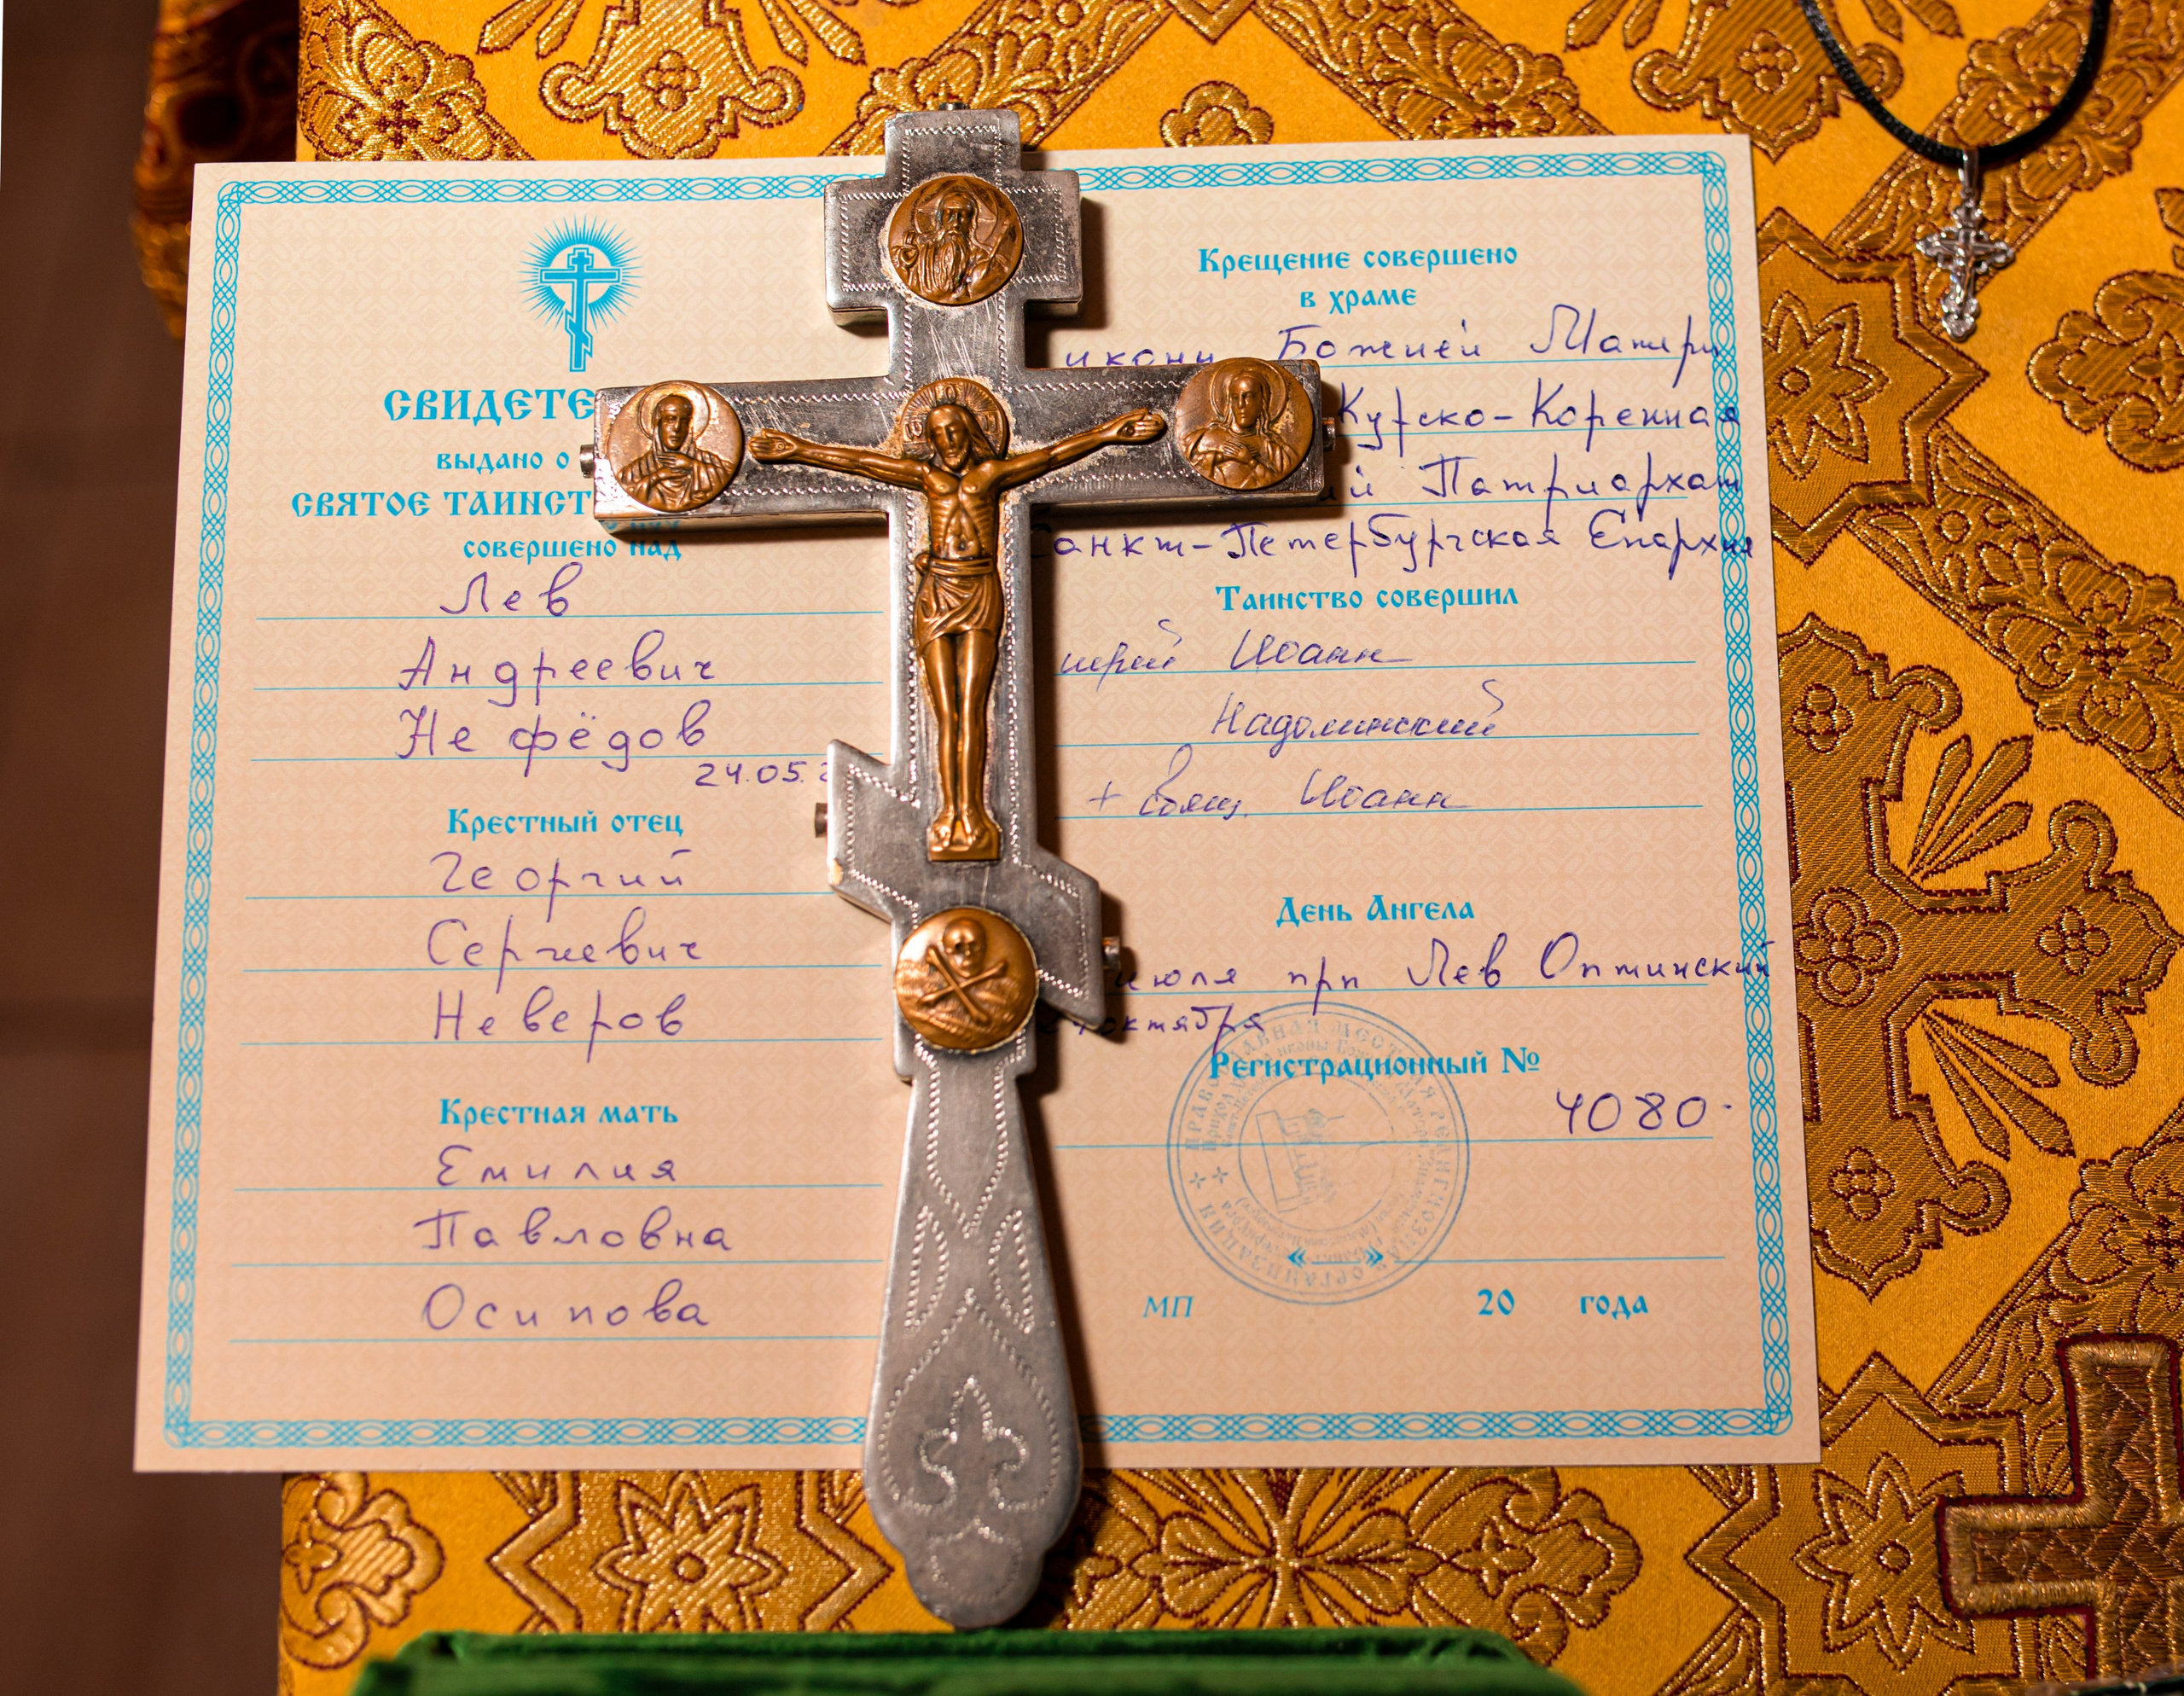 СВИДЕТЕ
выдано о
СВЯТОЕ ТАИНСТ
совершено над
Лев
Андреевич
Нефёдов
24.05.
Крестный отец
Георгий
Сергиевич
Неверов
Крестная мать
Емилия
Павловна
Осипова
Крещение совершено
в храме
иконы Божией Матери
Курско-Коренная
ий Патриархат
Санкт-Петербургская Епархия
Таинство совершил
иерей Иоанн
Надоминский
+ свящ. Иоанн
День Ангела
июля прп Лев Оптинский
октября
Регистрационный №
4080.
« »
МП 20 года